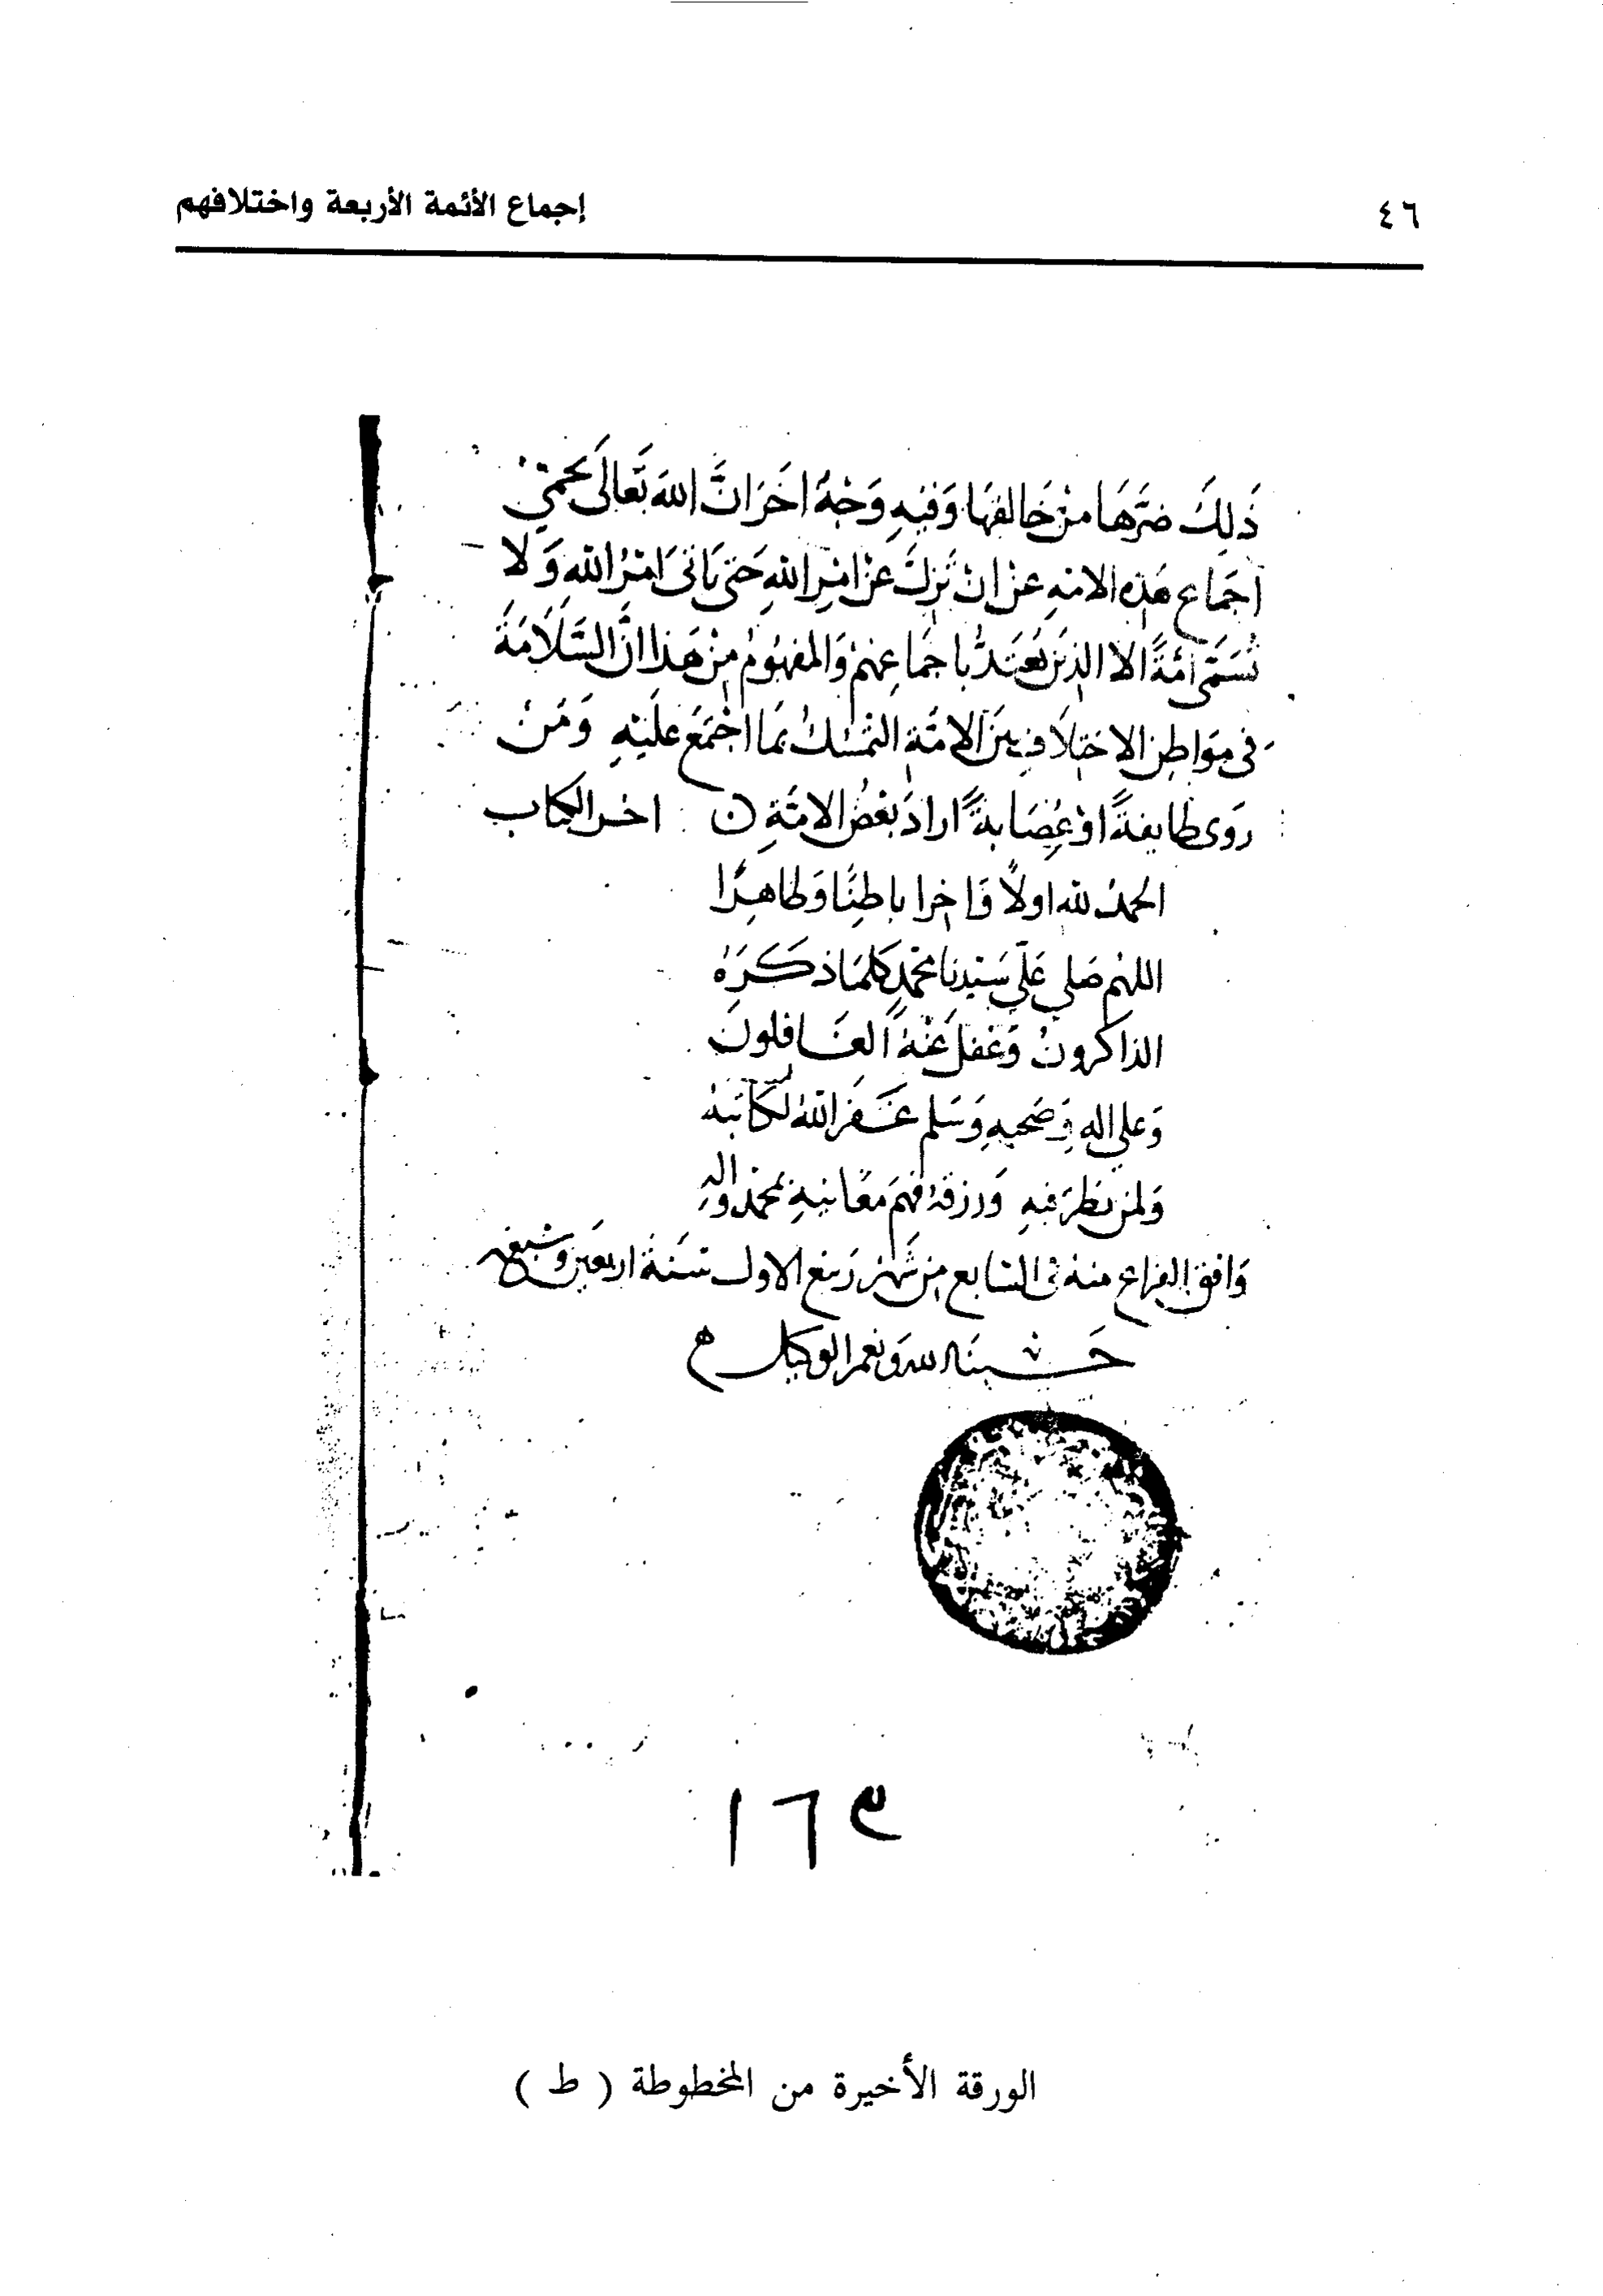 ٤٦
إجماع الأئمة الأربعة واختلافهم
ذَلِكَ ضرَّهَا مَنْ خَالفَهَا وَفيهِ وَجْهُ اخَرَ انَّ اللهَ تَعَالَى يحمي
اجمَاع هَذِه الامه عَنْ انْ تَزِلَّ عَنْ امْرِ اللهِ حَتى يَاتىَ امْرُ اللهِ وَلَا
تُسَمَّى امَّةً الا الذينَ يُعْتَدُّ باجمَاعِهِمْ وَالمفهُومُ مِنْ هَذا انَّ السَّلَامَةَ
فى مَوَاطِنِ الاختِلَافِ بينَ الامَّةِ التمسّكُ بمَا اجْتمَعَ عَلَيْهِ وَمَنْ
رَوَى طَايفةً اوْ عِصَابةً ارادَ بَعْضَ الامَّةِ ن اخر الكتاب
الحمدُ لله اولًا وَاخرا باطنًا وَظاهِرًا
اللهُم صَلي عَلَى سَيّدِنا محمدٍ كلمَا ذكَرَهُ
الذاكرونُ وَغَفلَ عَنْهُ الغَافلونَ
وَعلى الهِ وَصَحبهِ وَسَلم غَفَرَ اللهُ لكَاتبهُ
وَلمنْ نَظَرَ فيهِ وَرزقهُ فهمَ مَعَانيهِ بمحمدٍ والهِ
وَافق الفراغ منهُ فى السّابع مِنْ شَهْر رَبيْع الاول سَنَةَ اربعَينَ وسَبعمـ
حَسْبنَا الله وَنعم الوكيل
١٦٣
الورقة الأخيرة من المخطوطة ( ط )